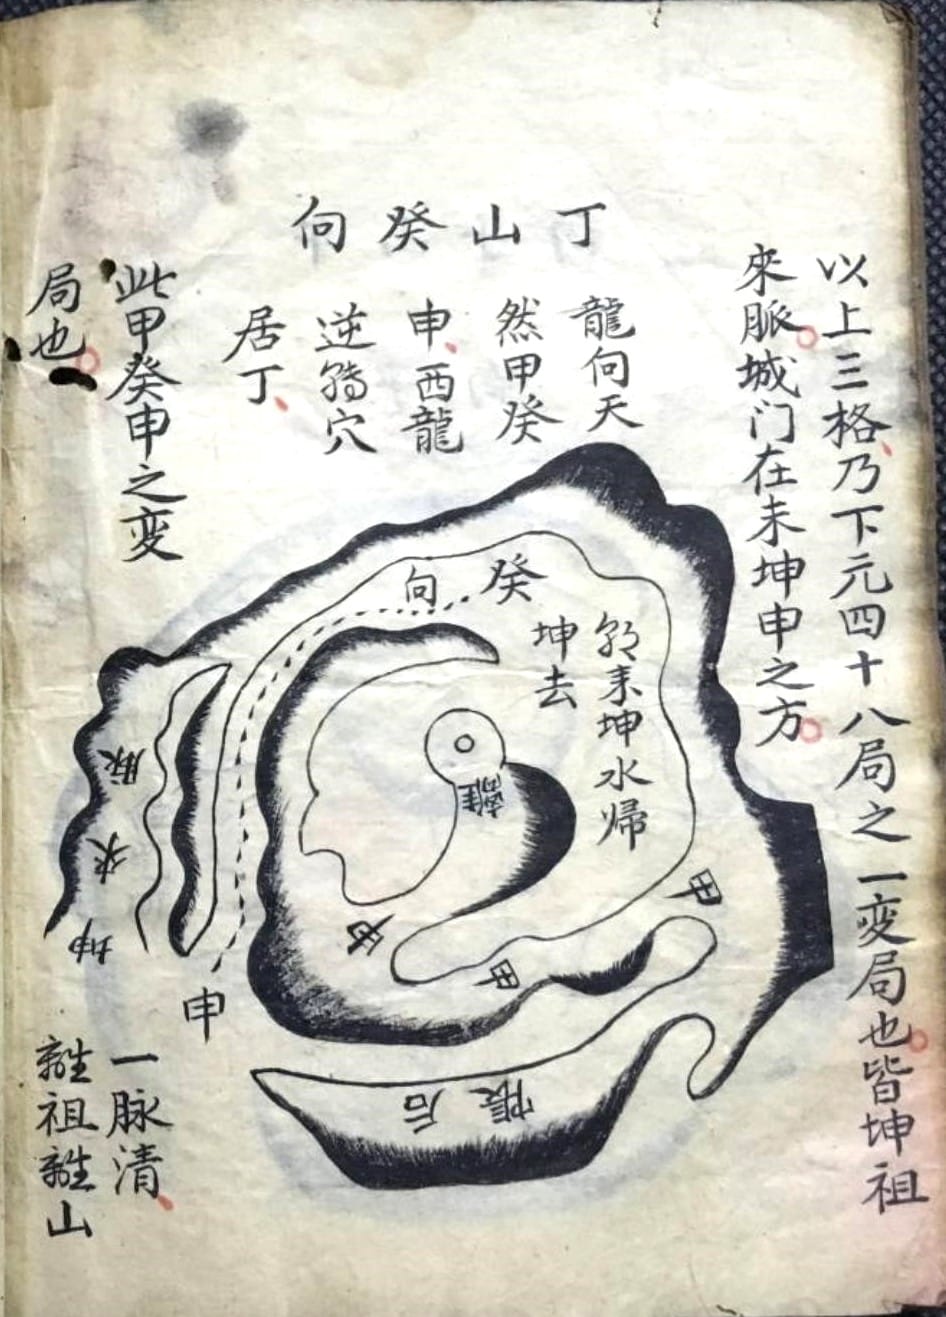 以上三格乃下元四十八局之一变局也皆坤祖
來脈城门在未坤申之方
丁山癸向
龍向天
然甲癸
申西龍
逆 穴
居丁
此甲癸申之变
局也
癸向
未坤水歸
坤去
離
甲
申
坤來脈
后帳
申
一脉清
離祖離山